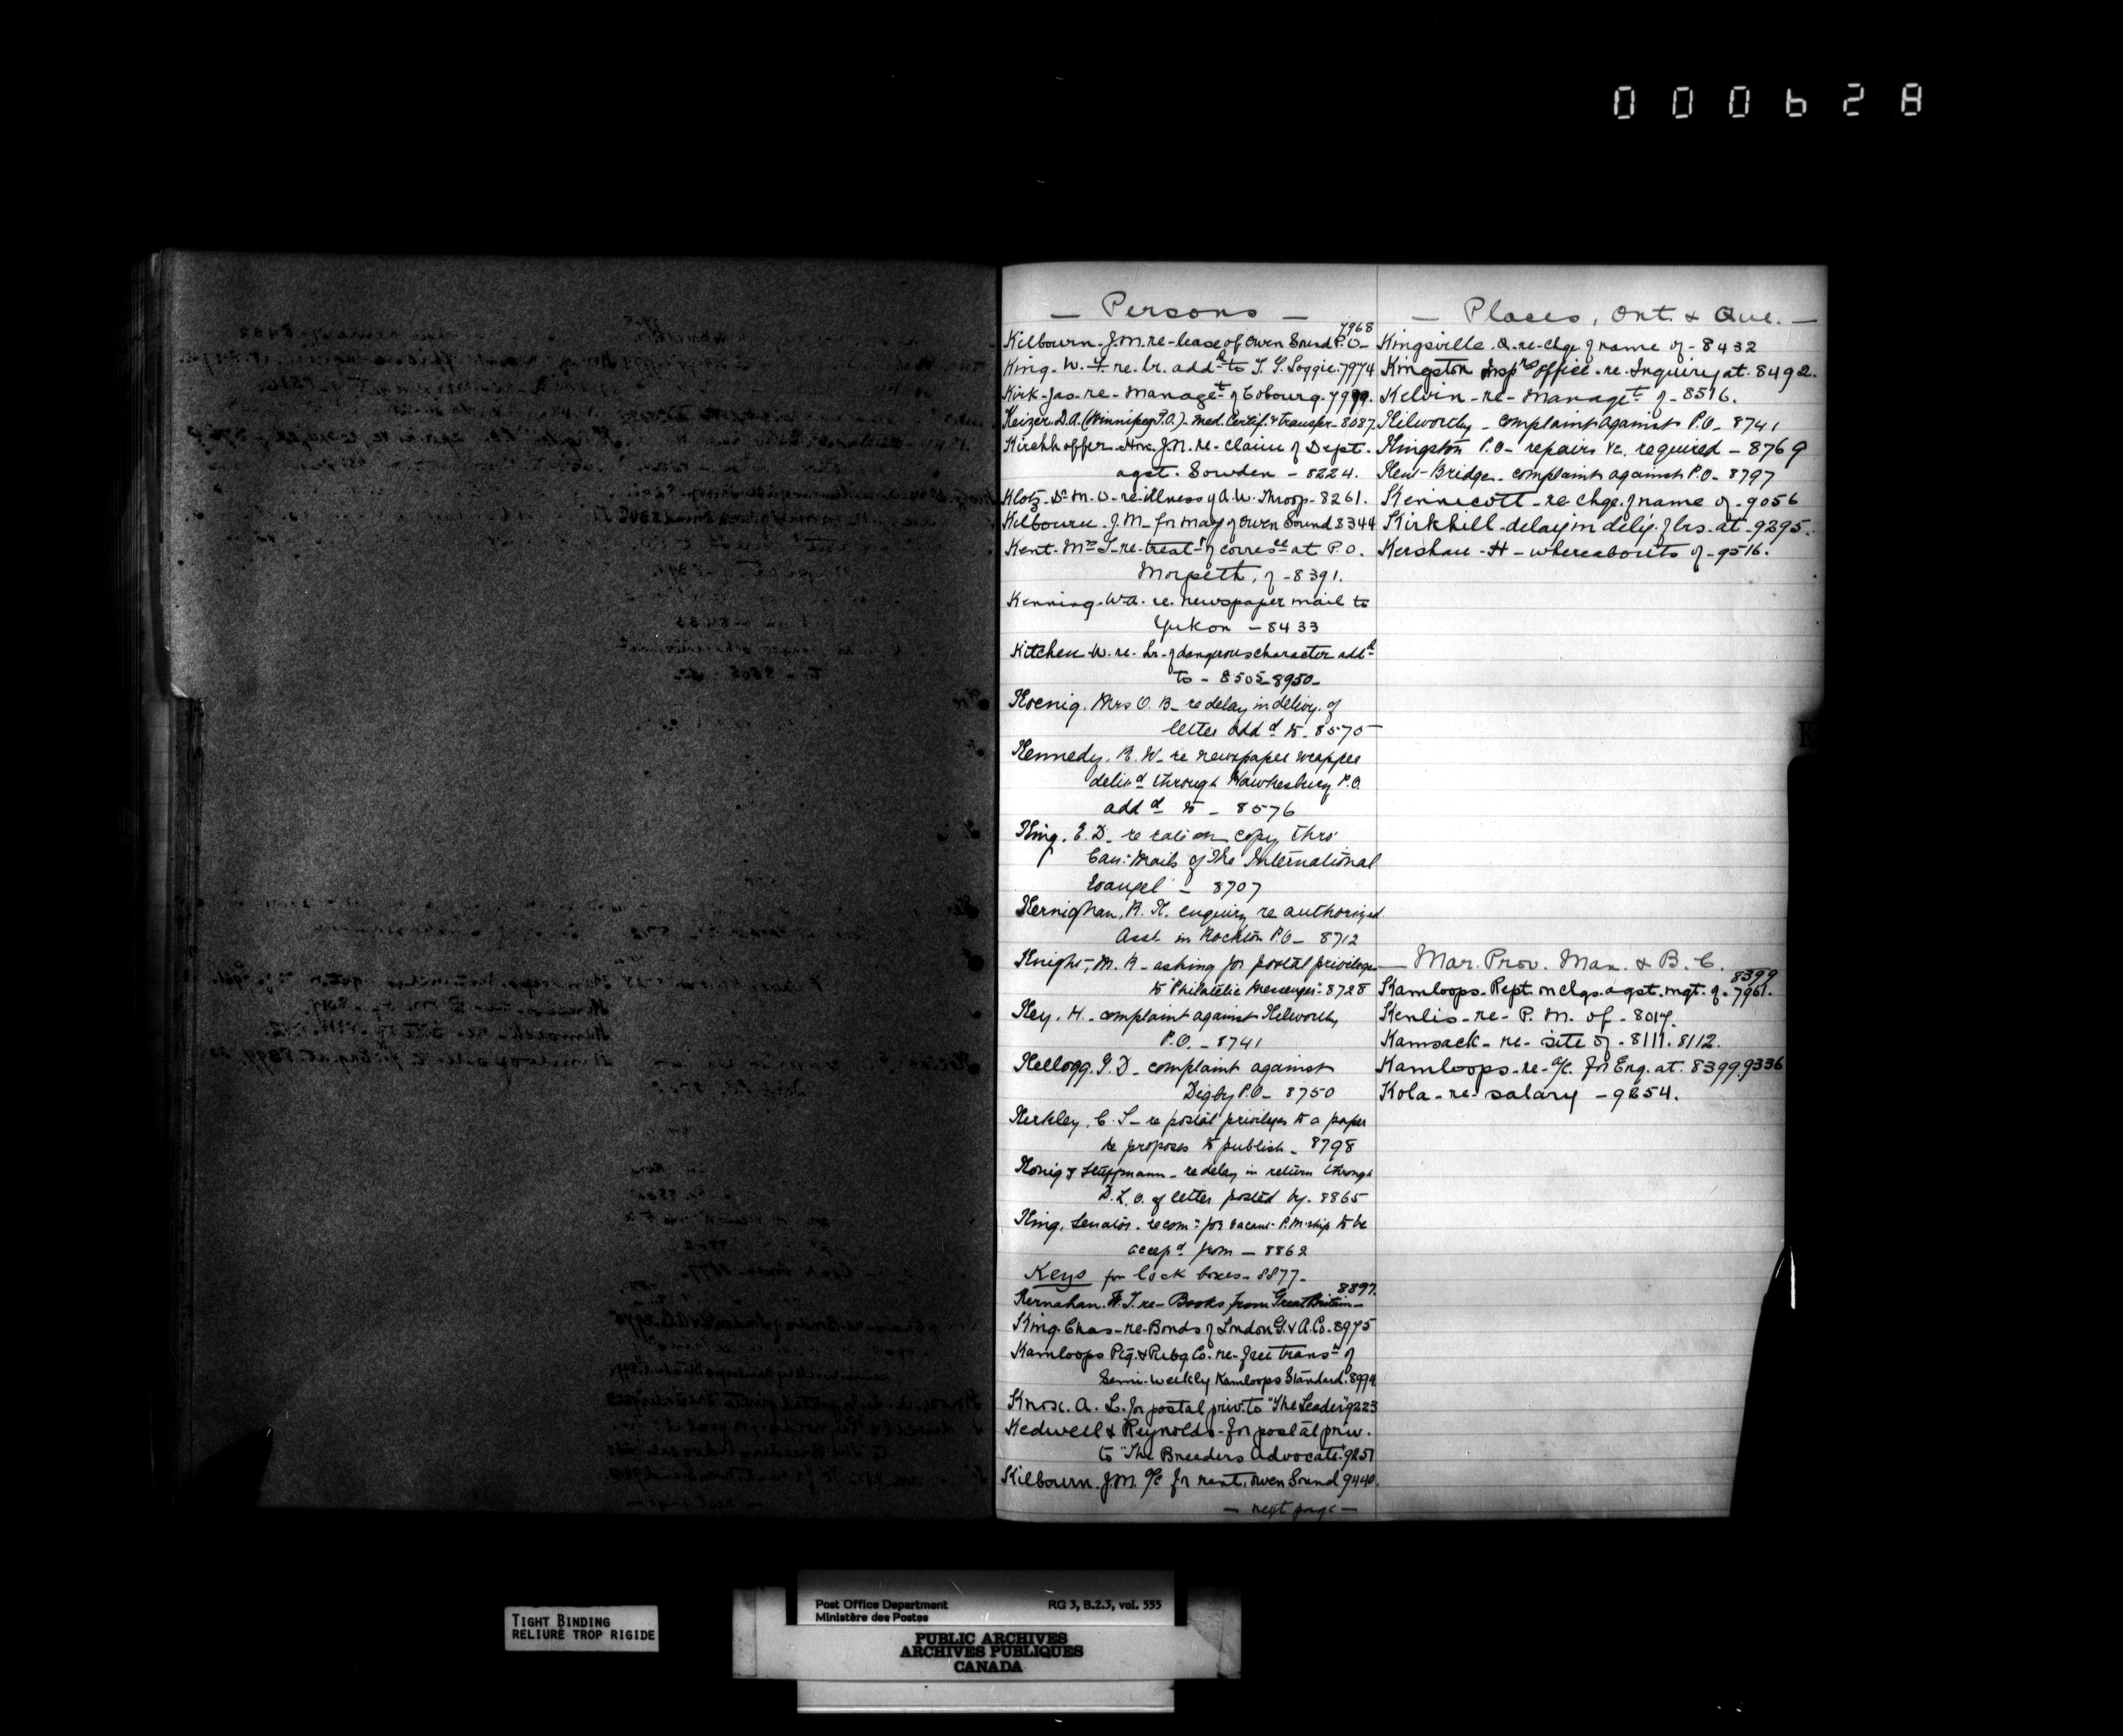 000628
— Persons —
7968
Kilbourn. J.M. re-lease of Owen Sound P.O-
King. W. re. lr. addd to T. G. Loggie. 7974
Kirk-Jas-re-Managet of Cobourg. 7999.
Keizer. D.A. (Winnipeg P.O.)-Med. Certif. & transfer-8087.
Kirchhoffer. Hon. J.N. re-claim of Dept.
agst. Sowden - 8224.
Klotz. Dr M. O-re-illness of A.W. Throop-8261.
Kilbourn. J.M- for may of Owen Sound 8344
Kent-Mrs re-treatt of corresce at P.O.
Morpeth, of -8391.
Kenning. W.A. re. newspaper mail to
Yukon - 8433
Kitchen W. re. Lr. of dangerous character addd
to - 8505-8950-
Koenig. Mrs O. B- re delay in delivy. of
letter addd to- 8570
Kennedy. R. W- re newspaper wrapper
delivd through Hawkesbury P.O.
addd to - 8576
King. E. D- re copy thro'
Can: Mails of "The International
Evangel" - 8707
Kernighan, R. K. enquiry re authorized
Asst. in Rockton P.O- 8712
Knight, M. R- asking for postal privileges
to "Philatelic Messenger"- 8728
Key. H- complaint against Kilworthy
P.O. - 8741
Kellogg. G. D- complaint against
Digby P.O- 8750
Kerkley, C. S- re postal privileges to a paper
he proposes to publish- 8798
Konig & - re delay in return through
D. L. O. of letter posted by- 8865
King. Senator. recom: for vacant P.M.ship to be
accepd from - 8862
Keys for lock boxes- 8877-
8897.
Kernahan. W. T. re-Books from Great Britain-
King. Chas-re-Bonds of London G. & A. Co. 8975
Kamloops Ptg. & Pubg. Co. re-free transn of
Semi-Weekly Kamloops Standard. 8994
Knox. A. L. for postal priv. to "The Leader" 9223
Kedwell & Reynolds-for postal priv.
to "The Breeders Advocate" 9251
Kilbourn. J.M. a/c for rent. Owen Sound 9440.
— next page —
— Places, Ont. & Que. —
Kingsville. O. re-chge. of name of - 8432
Kingston Insprs office-re-Inquiry at. 8492.
Kelvin-re-Managet of-8516.
Kilworthy- complaint against P.O- 8741
Kingston P.O- repairs &c. required - 8769
Kent-Bridge- complaint against P.O- 8797
Kennicott-re chge. of name of-9056
Kirkhill-delay in deliy. of lrs. at-9295.
Kershaw-H-whereabouts of-9516.
— Mar. Prov. Man. & B. C.
8399
Kamloops. Rept. on chgs. agst. mgt. of. 7961.
Kenlis-re- P. M. of-8017.
Kamsack-re-site of-8111. 8112.
Kamloops-re-a/c. for Enq. at. 8399. 9336
Kola-re-salary -9254.
K
TIGHT BINDING
RELIURE TROP RIGIDE
Post Office Department RG 3, B.2.3, vol. 555
Ministère des Postes
PUBLIC ARCHIVES
ARCHIVES PUBLIQUES
CANADA